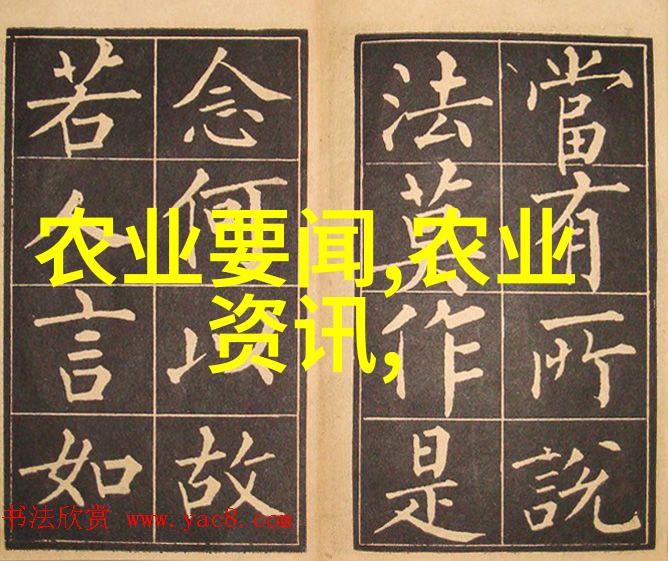 當有所說
法莫作是
念何以故
若人言如
农业要闻,农业
资讯,
书法欣赏 www.yac8.com